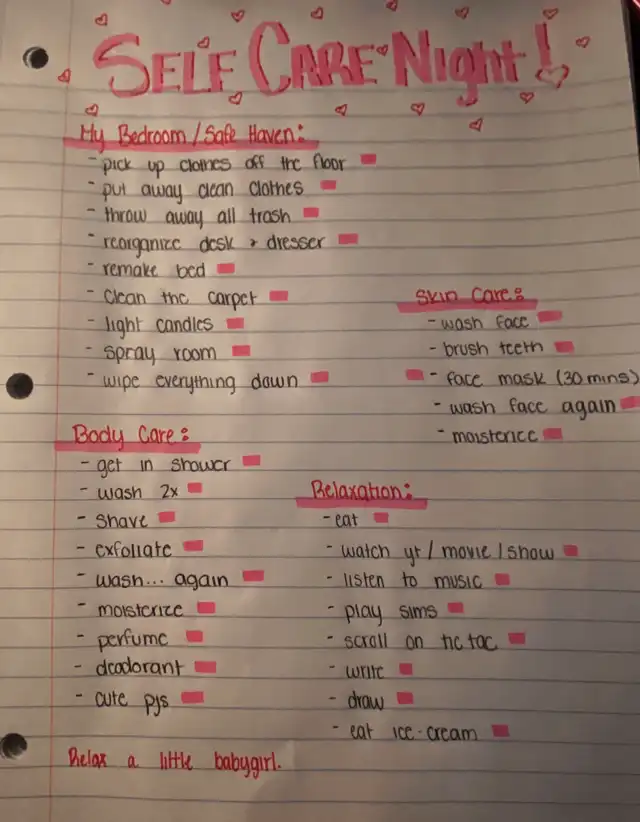 SELF CARE Night!
My Bedroom/Safe Haven:
- pick up clothes off the floor
- put away clean clothes
- throw away all trash
- reorganize desk & dresser
- remake bed
- clean the carpet
- light candles
- spray room
- wipe everything down
Skin Care:
- wash face
- brush teeth
- face mask (30 mins)
- wash face again
- moisterice
Body Care:
- get in shower
- wash 2x
- shave
- exfoliate
- wash... again
- moisterize
- perfume
- deodorant
- cute pjs
Relaxation:
- eat
- watch yt / movie / show
- listen to music
- play sims
- scroll on tic tac
- write
- draw
- eat ice-cream
Relax a little babygirl.